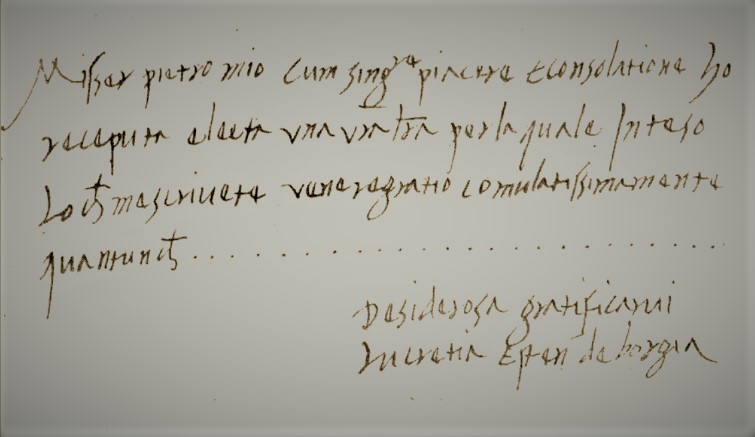 Misser pietro mio Cum sing.re piacere Econsolatione ho
receputa electa una vra lra per la quale Inteso
Lo ch mescriuete vene regratio comulatissimamente
quantunch . . . . . . . . . . . . . . . . . . . . . . . .
Desiderosa gratificarui
Lucretia Esten de borgia